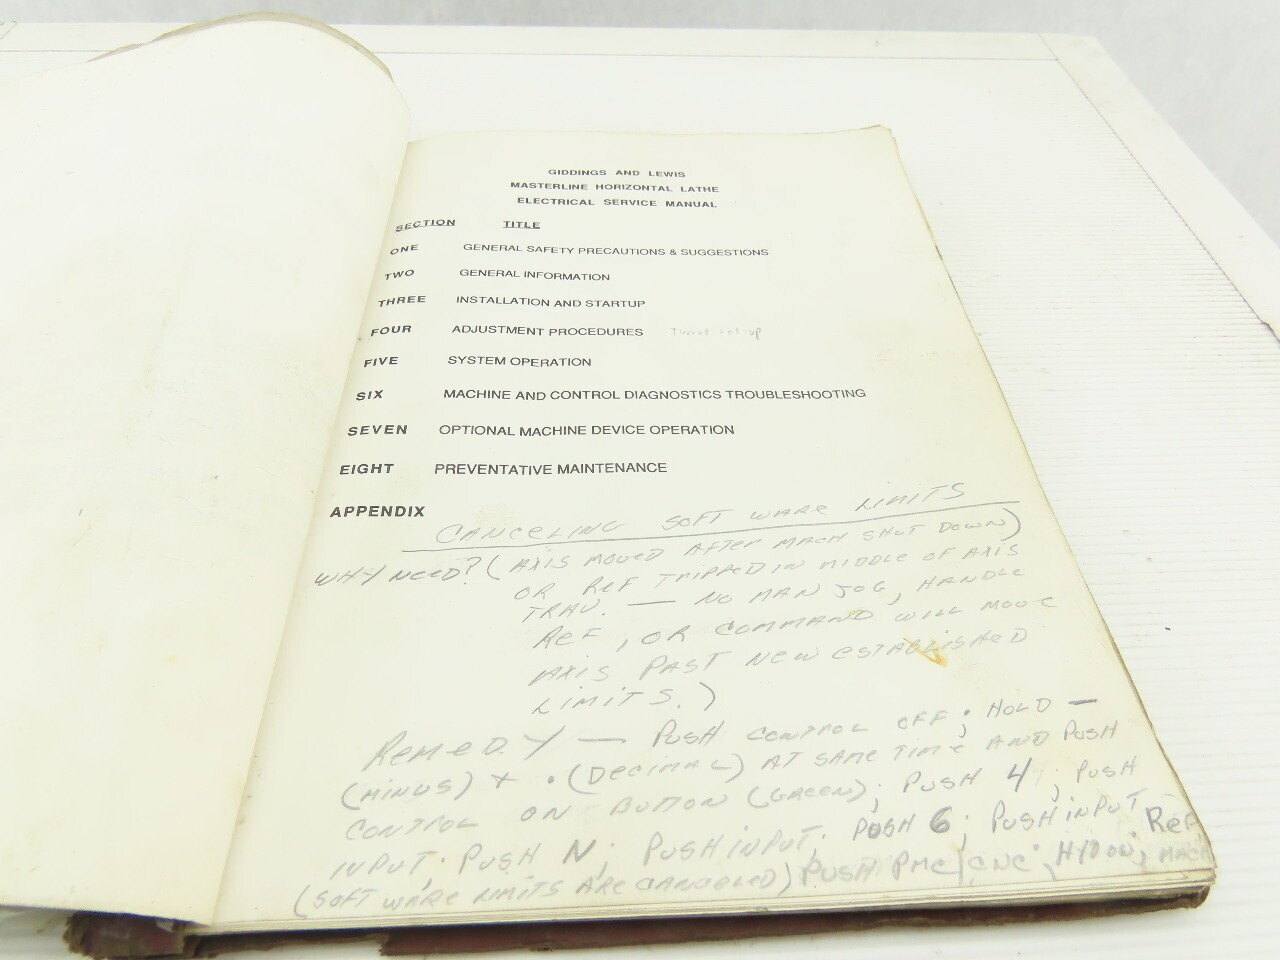 GIDDINGS AND LEWIS
MASTERLINE HORIZONTAL LATHE
ELECTRICAL SERVICE MANUAL
SECTION TITLE
ONE GENERAL SAFETY PRECAUTIONS & SUGGESTIONS
TWO GENERAL INFORMATION
THREE INSTALLATION AND STARTUP
FOUR ADJUSTMENT PROCEDURES Turret set-up
FIVE SYSTEM OPERATION
SIX MACHINE AND CONTROL DIAGNOSTICS TROUBLESHOOTING
SEVEN OPTIONAL MACHINE DEVICE OPERATION
EIGHT PREVENTATIVE MAINTENANCE
APPENDIX
CANCELING SOFT WARE LIMITS
WHY NEED? (AXIS MOVED AFTER MACH SHUT DOWN)
OR REF TRIPPED IN MIDDLE OF AXIS
TRAV. — NO MAN JOG, HANDLE
REF, OR COMMAND WILL MOVE
AXIS PAST NEW ESTABLISHED
LIMITS.)
REMEDY — PUSH CONTROL OFF; HOLD —
(MINUS) + . (DECIMAL) AT SAME TIME AND PUSH
CONTROL ON BUTTON (GREEN); PUSH 4; PUSH
INPUT; PUSH N; PUSH INPUT; PUSH 6; PUSH INPUT
(SOFT WARE LIMITS ARE CANCELED) PUSH PMC/CNC; HYD ON; REF MACH